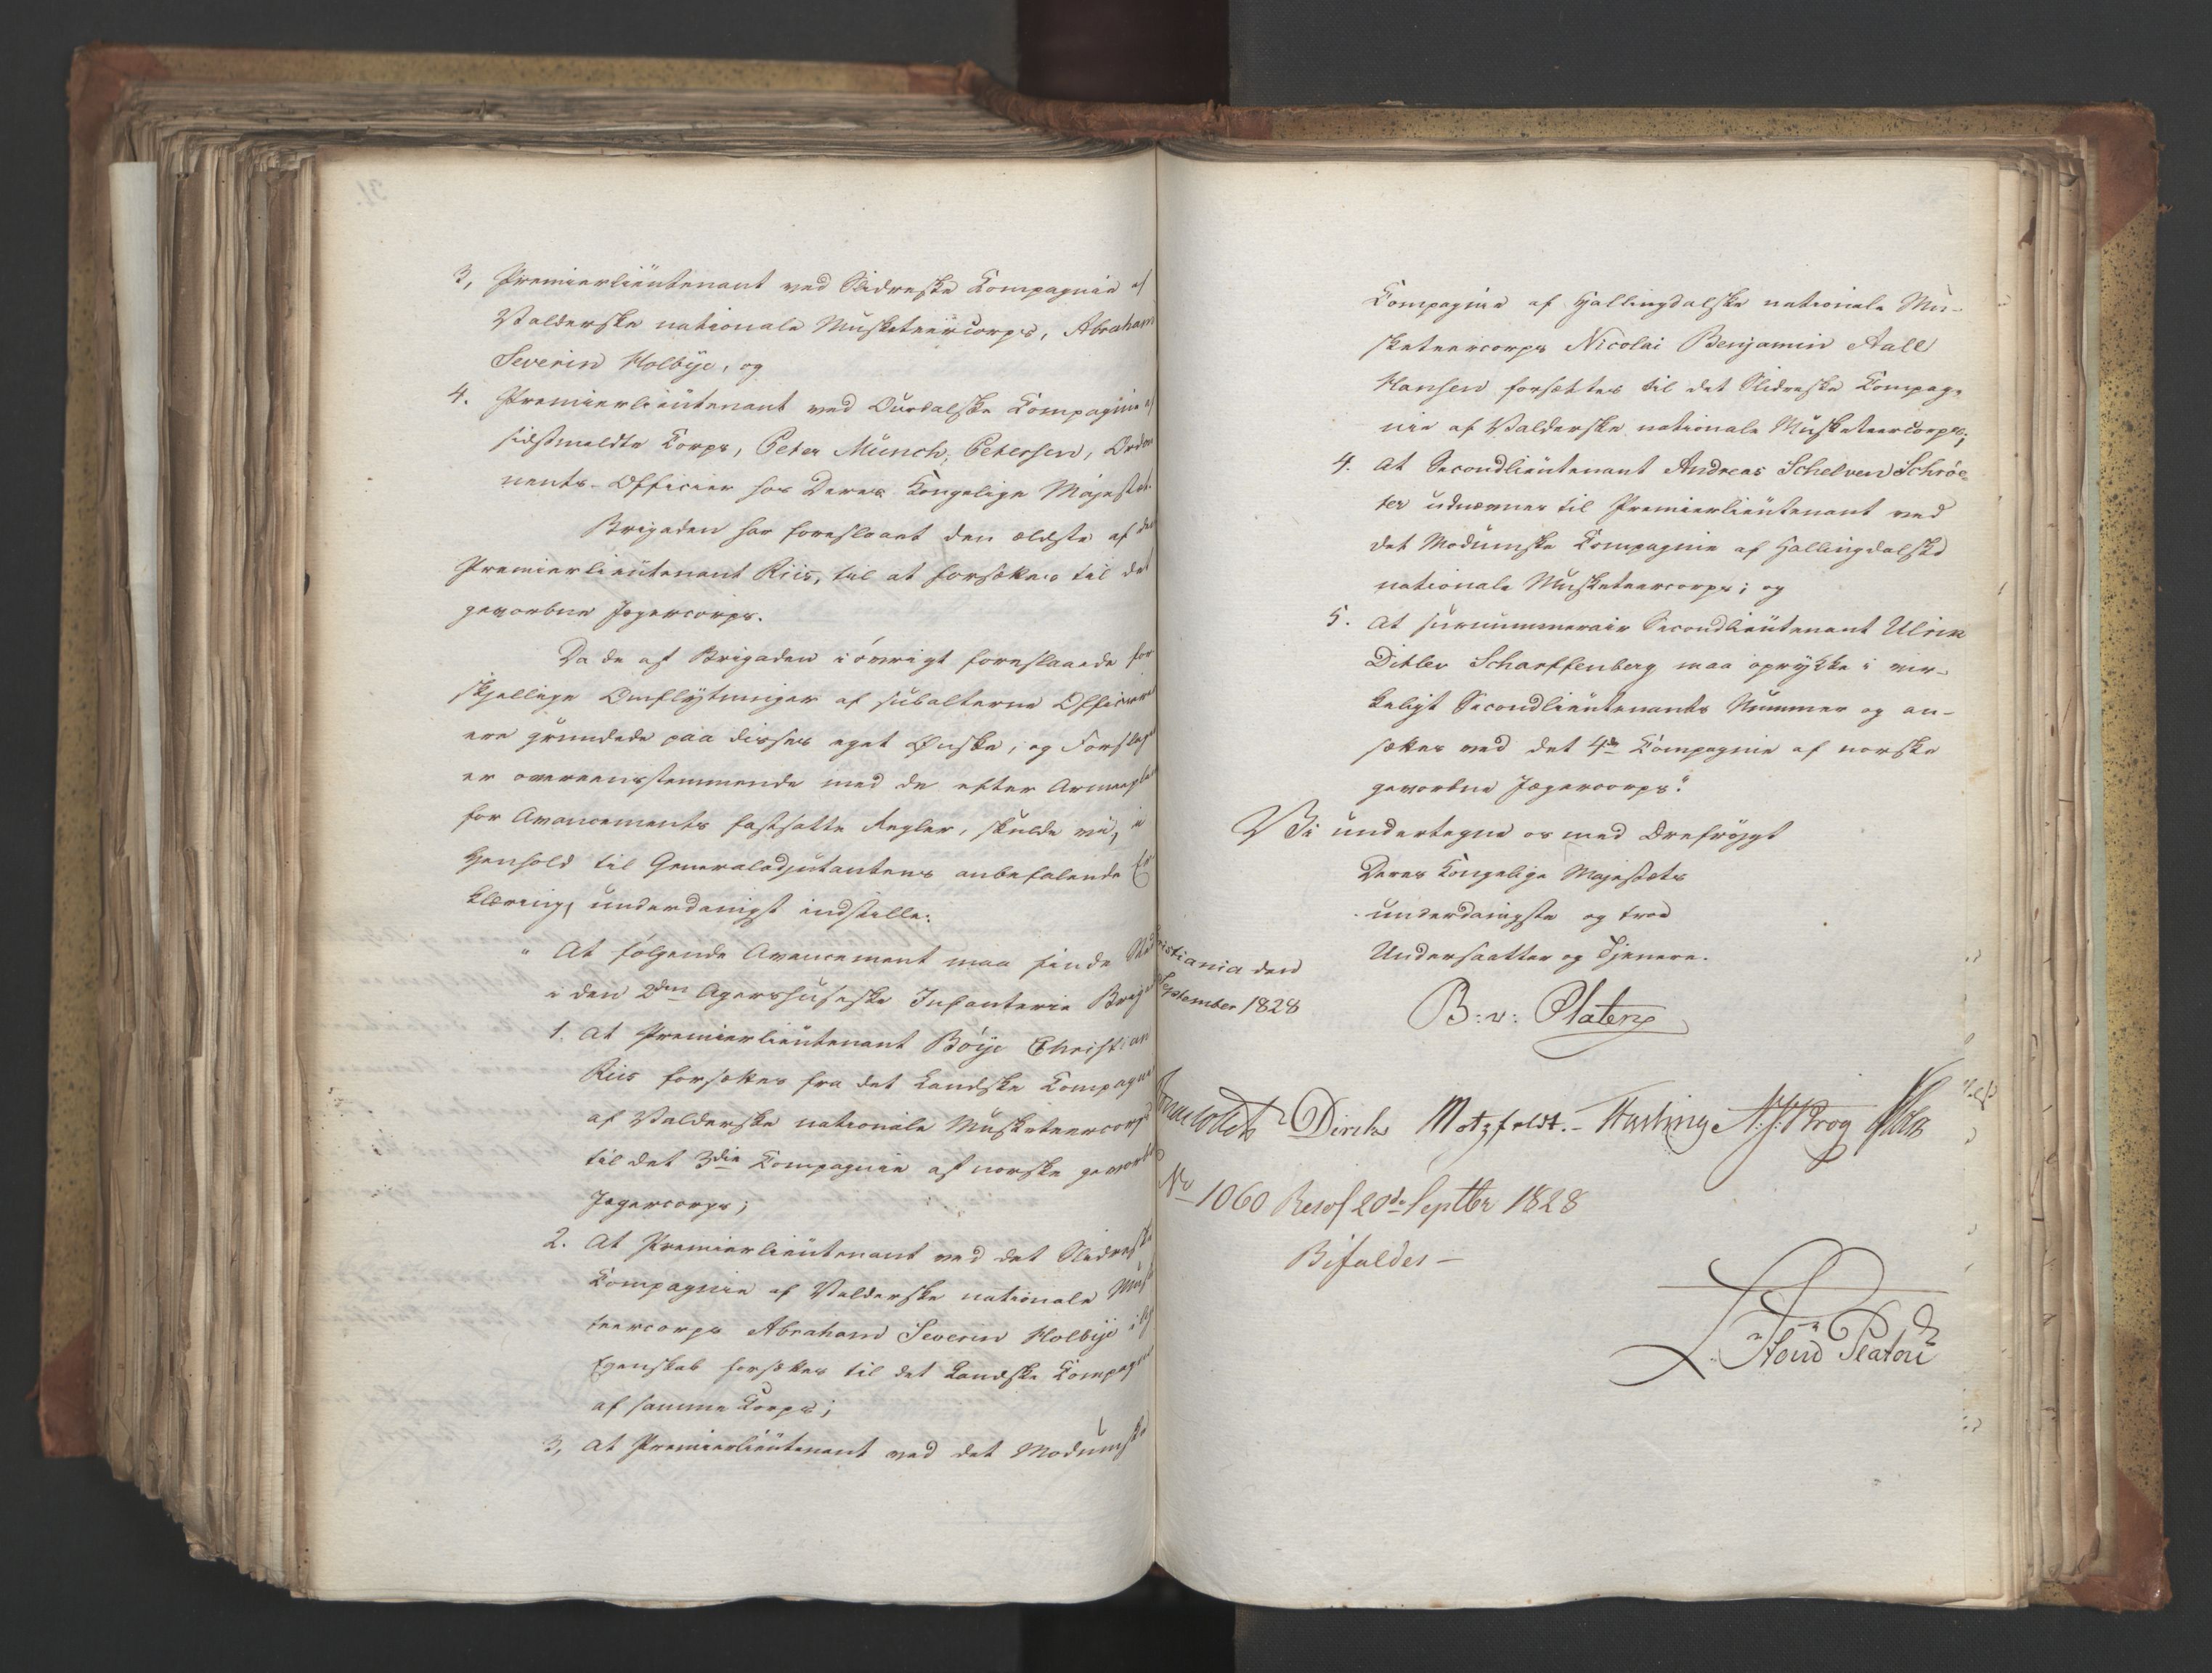 3, Premierlieutenant ved Slidreske Compagnie af
Valderske nationale Musketeercorps, Abraham
Severin Holbye, og
4. Premierlieutenant ved Ourdalske Compagnie af
sidstmeldte Corps, Peter Münch Petersen, Ordon
nents-Officier hos Deres Kongelige Majestæt.
Brigaden har foreslaaet den ældste af dem
Premierlieutenant Riis, til at forsættes til det
gevorbne Jægercorps.
Da de af Brigaden iøvrigt foreslaaede for
skjellige Omflytninger af subalterne Officierer
ere grundede paa disses eget Ønske, og Forslaget
er overeensstemmende med de efter Armeeplanen
for Avancements fastsatte Regler, skulde vi, i
Henhold til Generaladjutantens anbefalende Er
klæring, underdanigst indstille:
" At følgende Avancement maa finde Sted
i den 2den Agershusiske Infanterie Brigade
1. At Premierlieutenant Böye Christian
Riis forsættes fra det Landske Compagnie
af Valderske nationale Musketeercorps
til det 3die Compagnie af norske gevorbne
Jægercorps;
2. At Premierlieutenant ved det Slidreske
Compagnie af Valderske nationale Muske
teercorps Abraham Severin Holbye i lige
Egenskab forsættes til det Landske Compagnie
af samme Corps;
3, At Premierlieutenant ved det Modumske
Compagnie af Hallingdalske nationale Mu-
sketeercorps Nicolai Benjamin Aall
Hansen forsættes til det Slidreske Compag-
nie af Valderske nationale Musketeercorps;
4. At Secondlieutenant Andreas Schelven Schrøe-
ter udnævnes til Premierlieutenant ved
det Modumske Compagnie af Hallingdalske
nationale Musketeercorps; og
5. At surnummerair Secondlieutenant Ulrik
Ditlev Scharffenberg maa oprykke i vir-
keligt Secondlieutenants Nummer og an-
sættes ved det 4de Compagnie af norske
gevorbne Jægercorps."
Vi undertegne os med Ærefrygt
Deres Kongelige Majestæts
underdanigste og troe
Undersaatter og Tjenere.
istiania den
September 1828
B: v: Platen
Collett Dircks Motzfeldt.- Fasting N. J. Krog Holst
No 1060 Resol 20de Septbr 1828
Bifaldes -
Stoud Platou